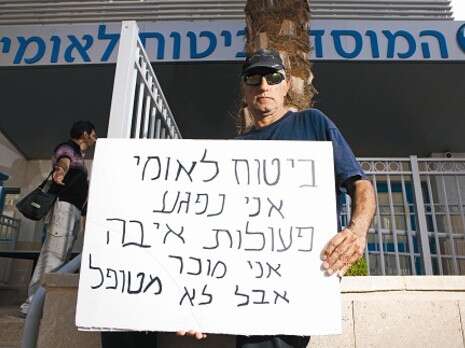 המוסד לביטוח לאומי
ביטוח לאומי
אני נפגע
פעולות איבה
אני מוכר
אבל לא מטופל